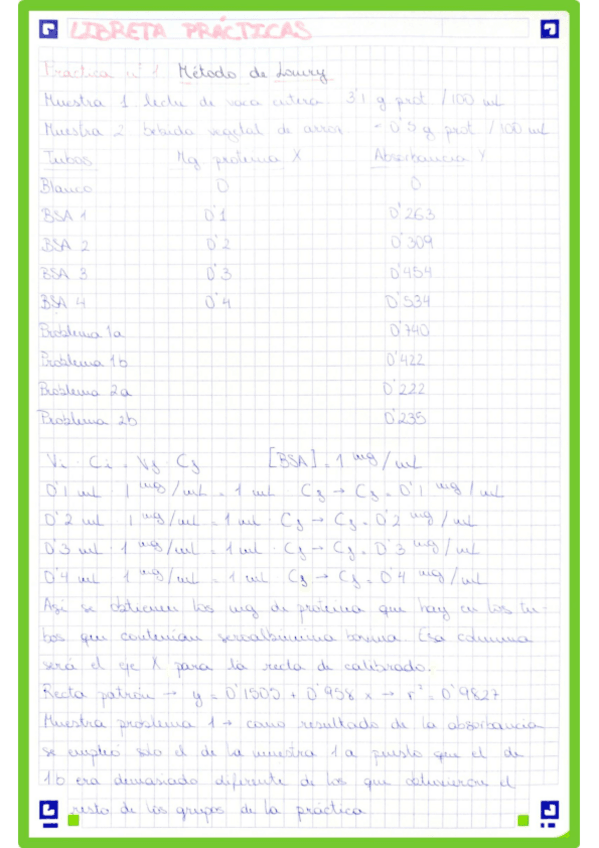 LIBRETA PRÁCTICAS
Práctica nº 1. Método de Lowry
Muestra 1 leche de vaca entera 3'1 g prot / 100 mL
Muestra 2 bebida vegetal de arroz 0'5 g prot / 100 mL
Tubos Mg proteina X Absorbancia Y
Blanco 0 0
BSA 1 0'1 0'263
BSA 2 0'2 0'309
BSA 3 0'3 0'454
BSA 4 0'4 0'534
Problema 1a 0'740
Problema 1b 0'422
Problema 2a 0'222
Problema 2b 0'235
Vi · Ci = Vf · Cf [BSA] = 1 mg/mL
0'1 mL · 1 mg/mL = 1 mL · Cf → Cf = 0'1 mg/mL
0'2 mL 1 mg/mL = 1 mL · Cf → Cf = 0'2 mg/mL
0'3 mL · 1 mg/mL = 1 mL · Cf → Cf = 0'3 mg/mL
0'4 mL 1 mg/mL = 1 mL Cf → Cf = 0'4 mg/mL
Así se obtienen los mg de proteina que hay en los tu-
bos que contenían seroalbúmina bovina. Esa columna
será el eje X para la recta de calibrado.
Recta patrón → y = 0'1505 + 0'958 x → r² = 0'9827
Muestra problema 1 → como resultado de la absorbancia
se empleó solo el de la muestra 1a puesto que el de
1b era demasiado diferente de los que obtuvieron el
resto de los grupos de la práctica